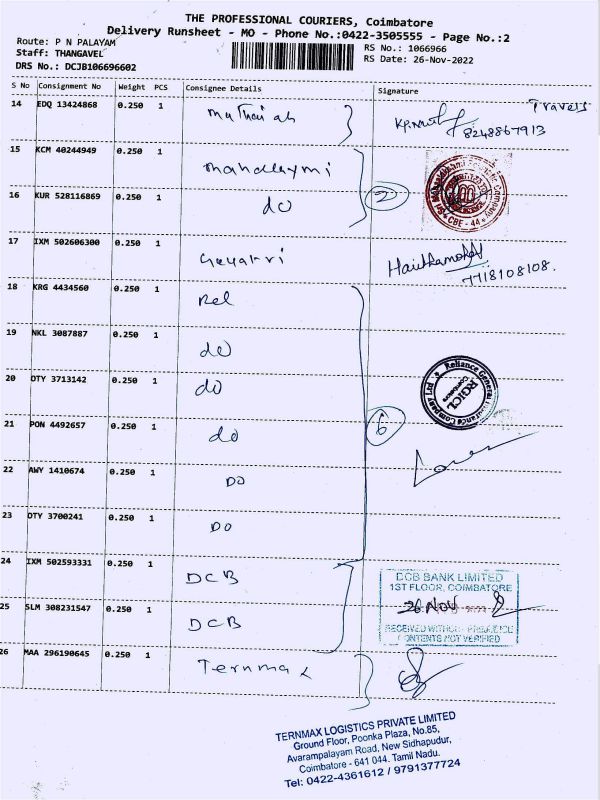 THE PROFESSIONAL COURIERS, Coimbatore
Delivery Runsheet - MO - Phone No.:0422-3505555 - Page No.:2
Route: P N PALAYAM
Staff: THANGAVEL
DRS No.: DCJB106696602
RS No.: 1066966
RS Date: 26-Nov-2022
S No Consignment No Weight PCS Consignee Details Signature
14 EDQ 13424868 0.250 1 Travels
8248867913
15 KCM 40244949 0.250 1
16 KUR 528116869 0.250 1 do 2
CBE - 44
17 IXM 502606300 0.250 1 Gayatri
7718108108.
18 KRG 4434560 0.250 1 Rel
19 NKL 3087887 0.250 1 do
20 OTY 3713142 0.250 1 do
Reliance General Insurance Company Ltd
RGICL
Coimbatore
21 PON 4492657 0.250 1 do 6
22 AWY 1410674 0.250 1 DO
23 OTY 3700241 0.250 1 DO
24 IXM 502593331 0.250 1 DCB
DCB BANK LIMITED
1ST FLOOR, COIMBATORE
25 SLM 308231547 0.250 1 DCB
26 NOV
RECEIVED WITHOUT PREJUDICE
CONTENTS NOT VERIFIED
26 MAA 296190645 0.250 1 Ternmax
TERNMAX LOGISTICS PRIVATE LIMITED
Ground Floor, Poonka Plaza, No.85,
Avarampalayam Road, New Sidhapudur,
Coimbatore - 641 044. Tamil Nadu.
Tel: 0422-4361612 / 9791377724